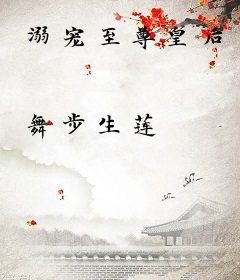 溺宠至尊皇后
舞步生莲